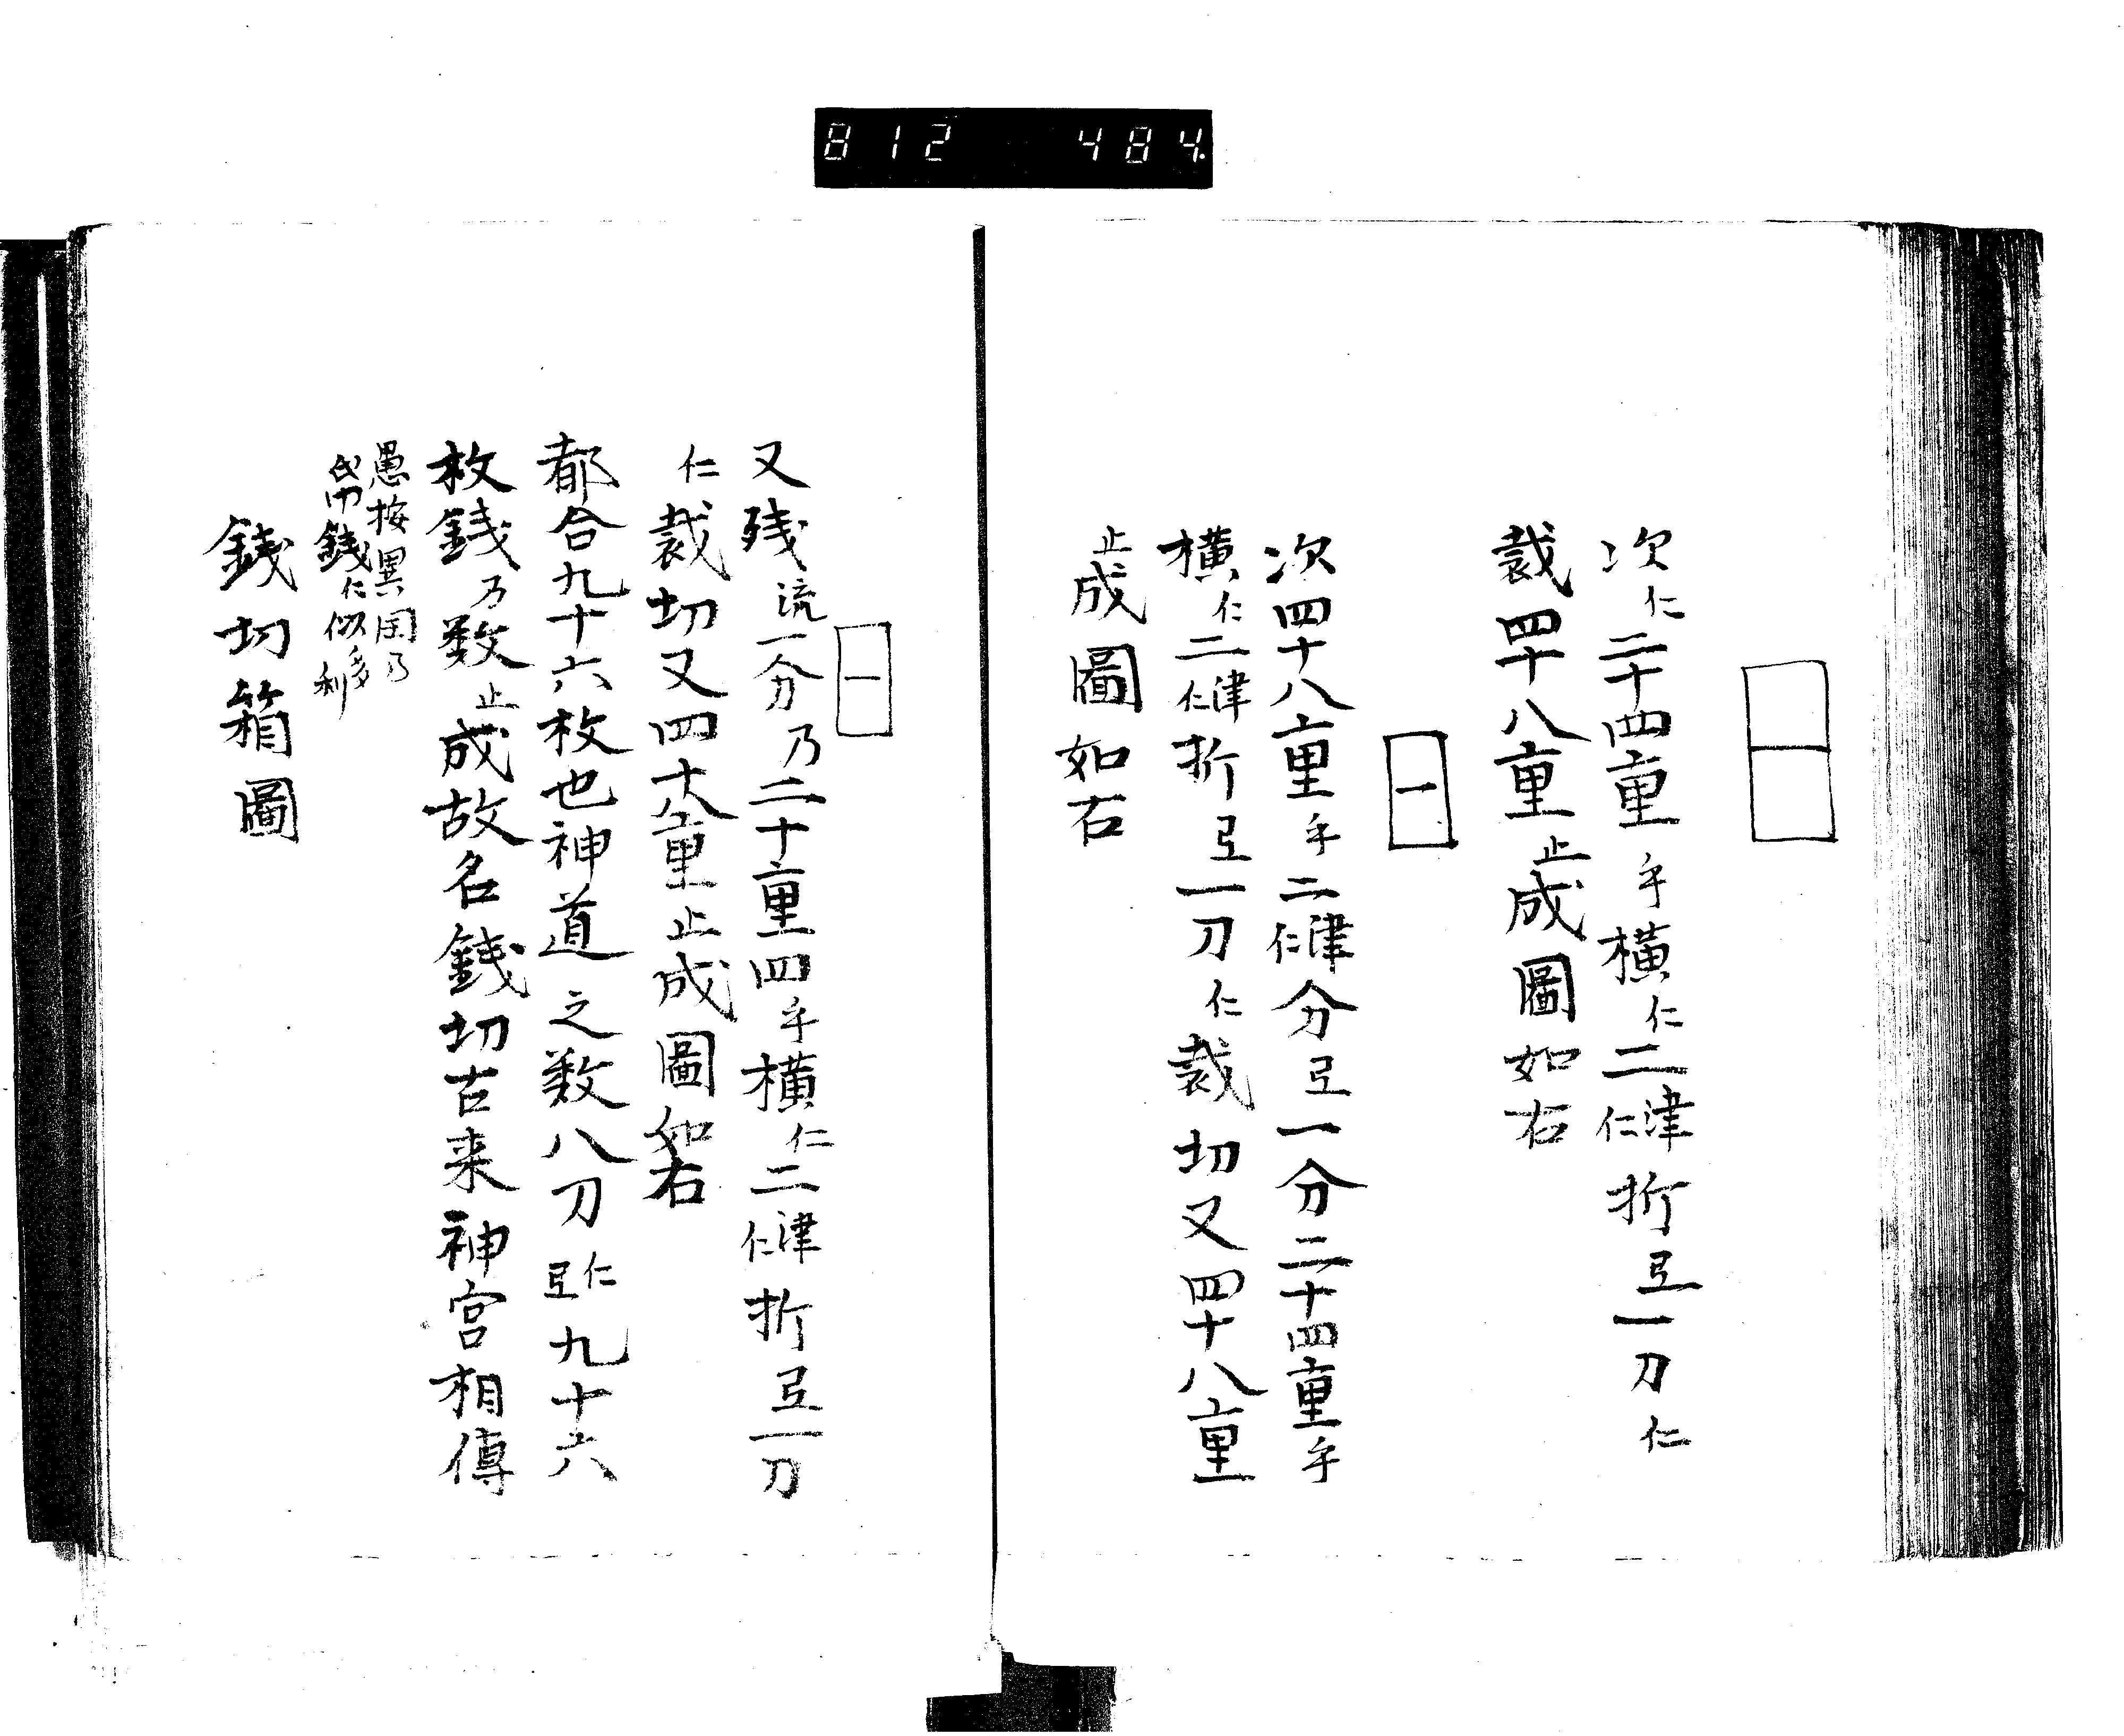 812 484.
次仁二十四重乎横仁二津仁折弖一刀仁
裁四十八重止成圖如右
次四十八重乎二津仁分弖一分二十四重乎
横仁二津仁折弖一刀仁裁切又四十八重
止成圖如右
又残流一分乃二十重四乎横仁二津仁折弖一刀
仁裁切又四十八重止成圖如右
都合九十六枚也神道之数八刀仁弖九十六
枚銭乃数止成故名銭切古来神宮相傳
愚按異国乃
帛銭仁似多利
銭切箱圖